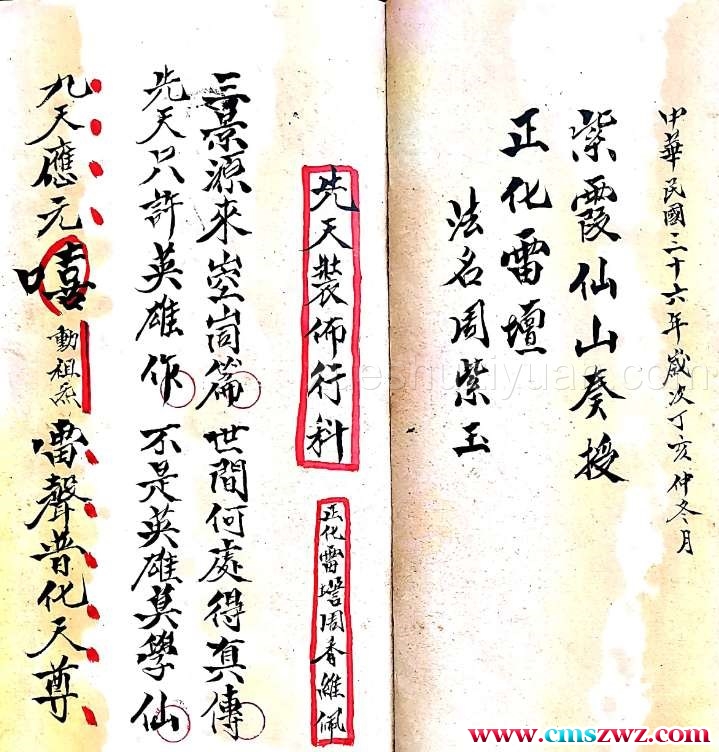 中華民國三十六年歲次丁亥仲冬月
紫霞仙山奏授
正化雷壇
法名周紫玉
先天裝佈行科
正化雷壇周香維佩
三景源來崆峒篇 世間何處得真傳
先天只許英雄作 不是英雄莫學仙
九天應元 動祖炁 雷聲普化天尊
www.cmszwz.com